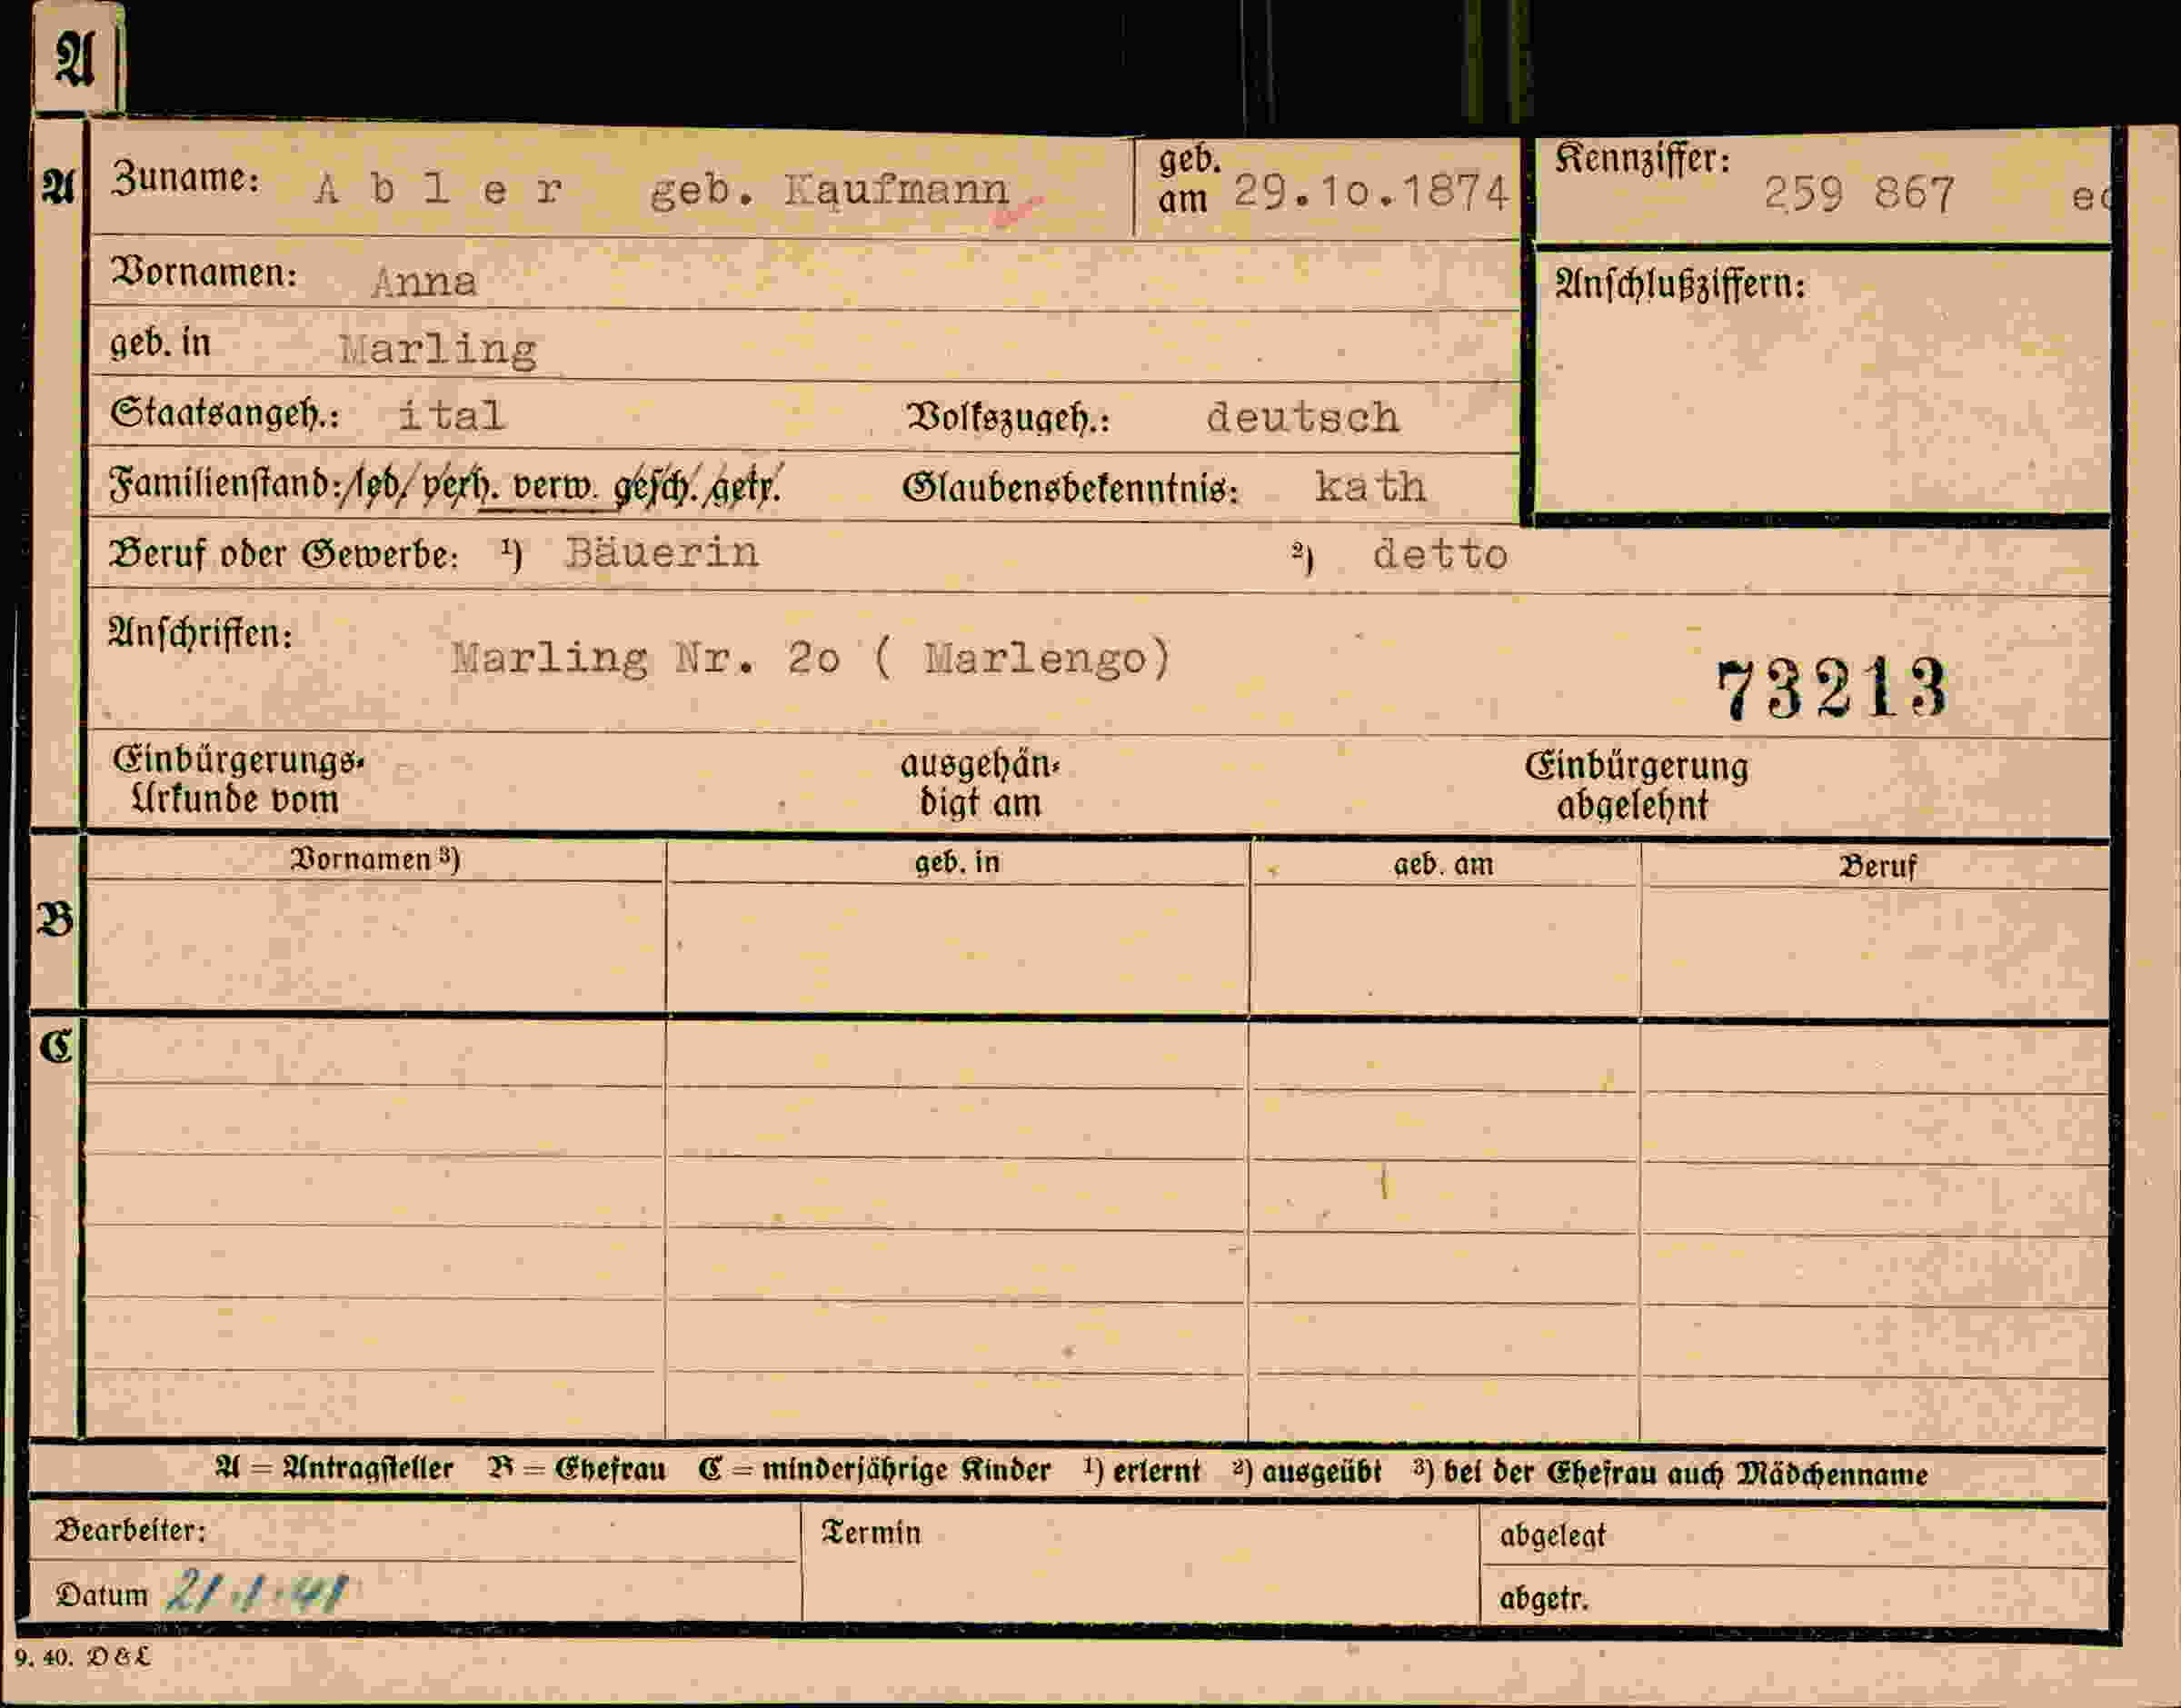 A
A Zuname: A b l e r geb. Kaufmann geb. am 29.10.1874 Kennziffer: 259 867
Vornamen: Anna Anschlußziffern:
geb. in Marling
Staatsangeh.: ital Volkszugeh.: deutsch
Familienstand: led. verh. verw. gesch. getr. Glaubensbekenntnis: kath
Beruf oder Gewerbe: ¹) Bäuerin ²) detto
Anschriften: Marling Nr. 2o ( Marlengo)
73213
Einbürgerungs-
Urkunde vom
ausgehän-
digt am
Einbürgerung
abgelehnt
Vornamen ³) geb. in geb. am Beruf
B
C
A = Antragsteller B = Ehefrau C = minderjährige Kinder ¹) erlernt ²) ausgeübt ³) bei der Ehefrau auch Mädchenname
Bearbeiter: Termin abgelegt
Datum 21.1.41 abgetr.
9. 40. D & L